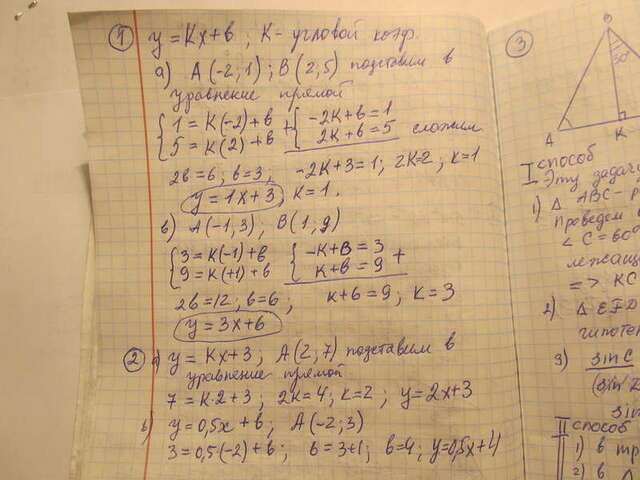 1 y = Kx + b ; K - угловой коэф.
a) A(-2; 1) ; B(2; 5) подставим в
уравнение прямой
{ 1 = K(-2) + b + { -2K + b = 1
5 = K(2) + b 2K + b = 5 сложим
2b = 6 ; b = 3 ; -2K + 3 = 1 ; 2K = 2 ; K = 1
y = 1x + 3 , K = 1 .
b) A(-1, 3) , B(1; 9)
{ 3 = K(-1) + b { -K + B = 3 +
9 = K(+1) + b K + b = 9
2b = 12 ; b = 6 ; K + 6 = 9 ; K = 3
y = 3x + 6
2 a) y = Kx + 3 ; A(2, 7) подставим в
уравнение прямой
7 = K·2 + 3 ; 2K = 4 ; K = 2 ; y = 2x + 3
b) y = 0,5x + b ; A(-2; 3)
3 = 0,5(-2) + b ; b = 3+1 ; b = 4 ; y = 0,5x + 4
3
B
30°
A
K
I способ
Эту задачу
1) Δ ABC - р
Проведем
∠ C = 60°
лежащ
=> KC
2) Δ
гипотен
3) sin C
sin
II способ
1) в тр
2) в Δ